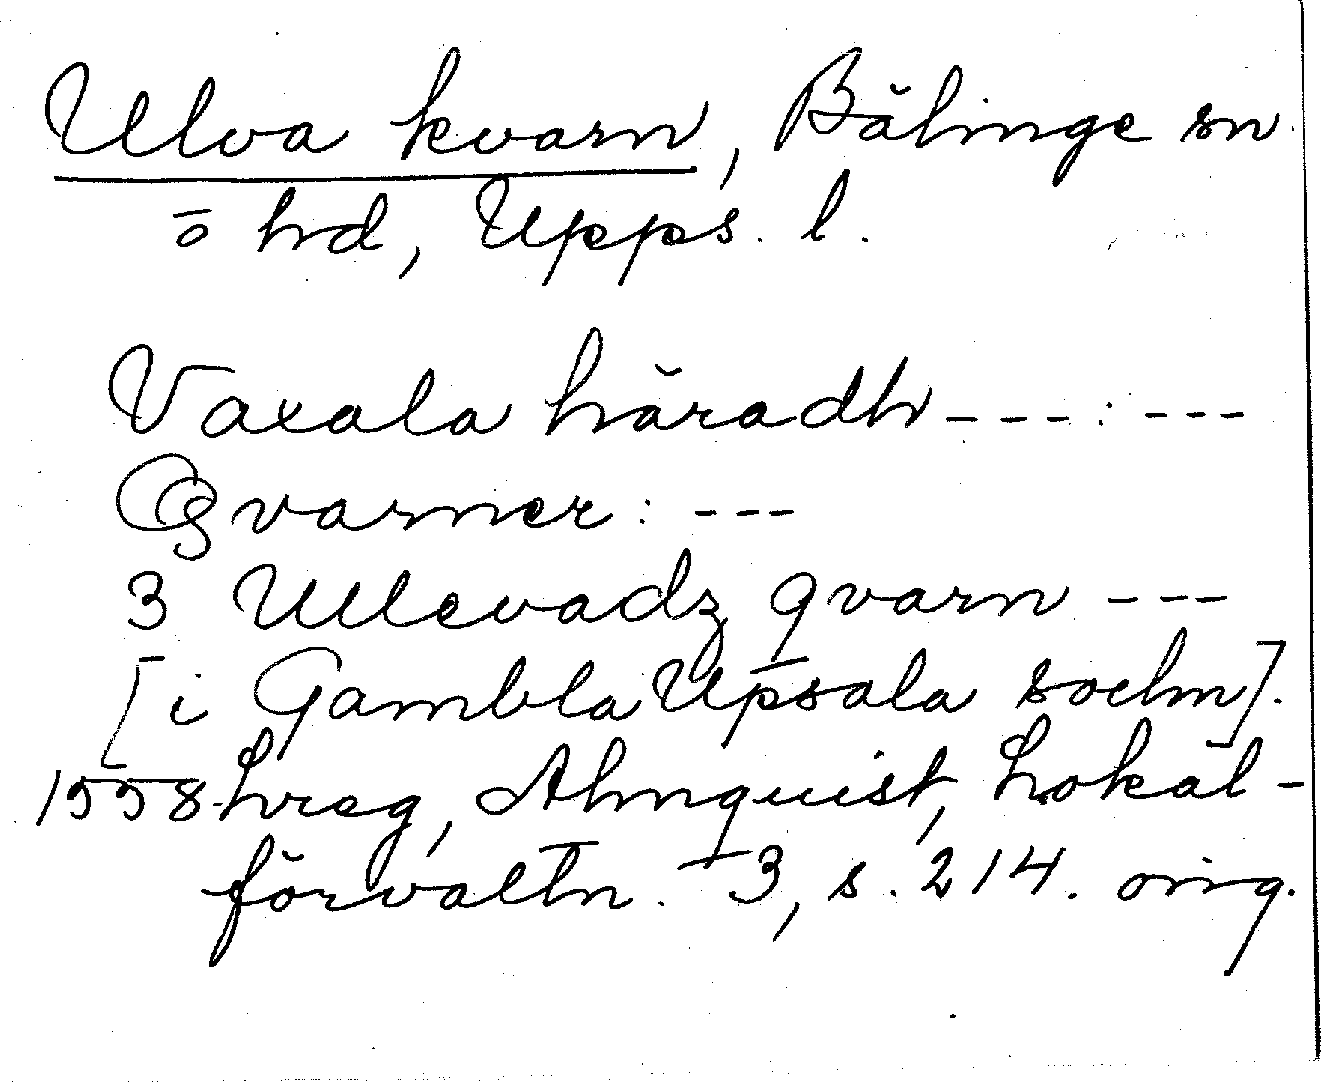 Ulva kvarn, Bälinge sn
o hd, Upps. l.
Vaxala häradh - - - : - - -
Qvarner: - - -
3 Ullevadz qvarn - - -
[i Gambla Upsala sochn].
1558 hreg, Almquist, Lokal-
förvaltn. 3, s. 214. orig.